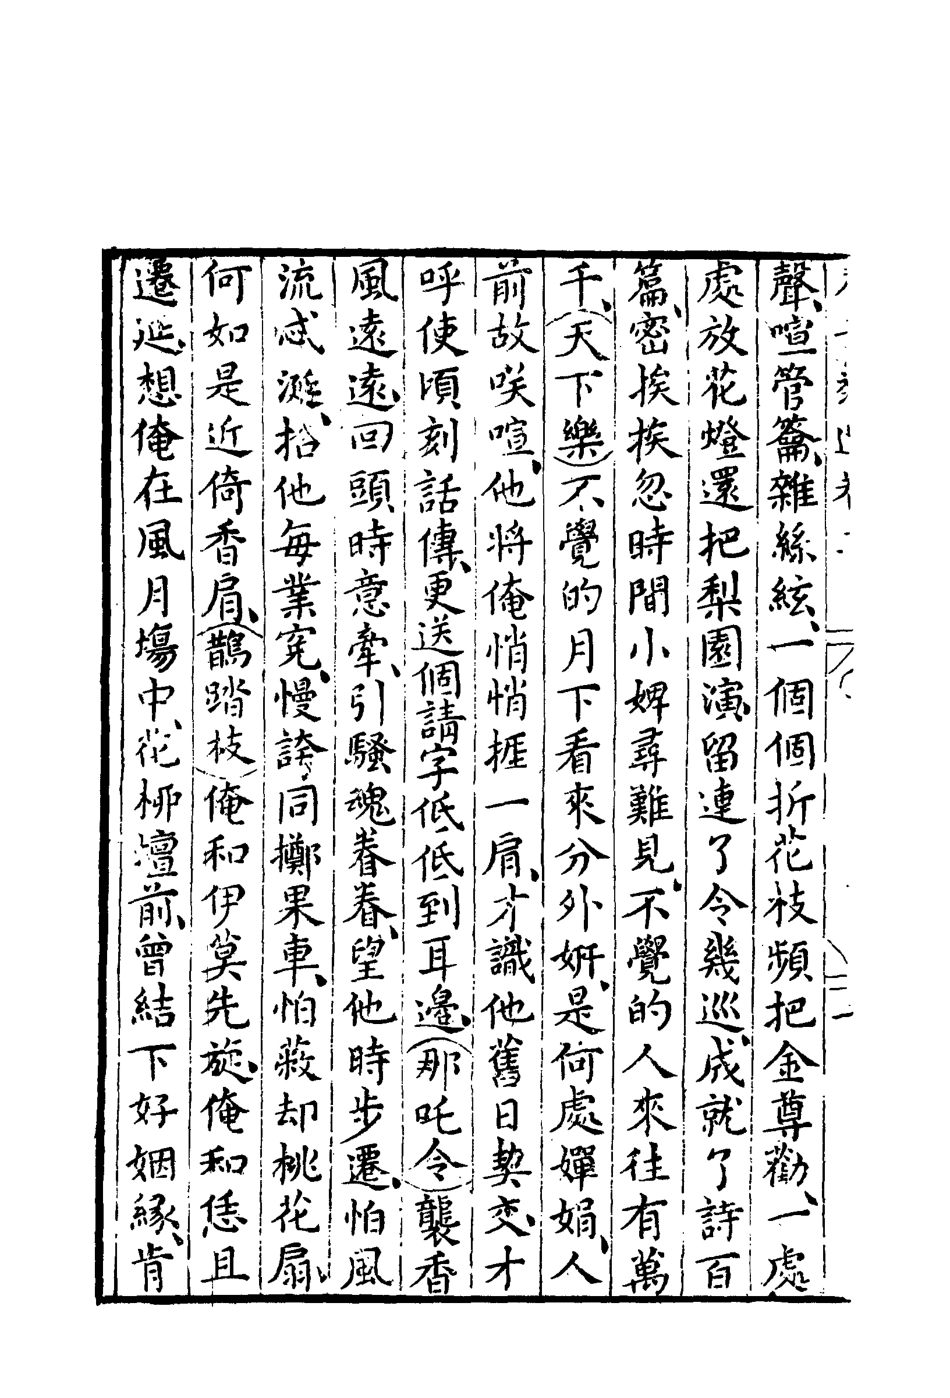 聲、喧管籥、雜絲絃、一個個折花枝頻把金尊勸、一處
處放花燈還把梨園演、留連了令幾巡、成就了詩百
篇、密挨挨忽時間小婢尋難見、不覺的人來往有萬
千、天下樂不覺的月下看來分外妍、是何處嬋娟、人
前故咲喧、他將俺悄悄捱一肩、才識他舊日契交、才
呼使頃刻話傳、更送個請字低低到耳邊、那吒令襲香
風遠遠、回頭時意牽、引騷魂眷眷、望他時步遷、怕風
流忒涎、掐他每業寃、慢誇同擲果車、怕蔽却桃花扇、
何如是近倚香肩、鵲踏枝俺和伊莫先旋、俺和恁且
遷延、想俺在風月塲中、花柳壇前、曾結下好姻緣、肯